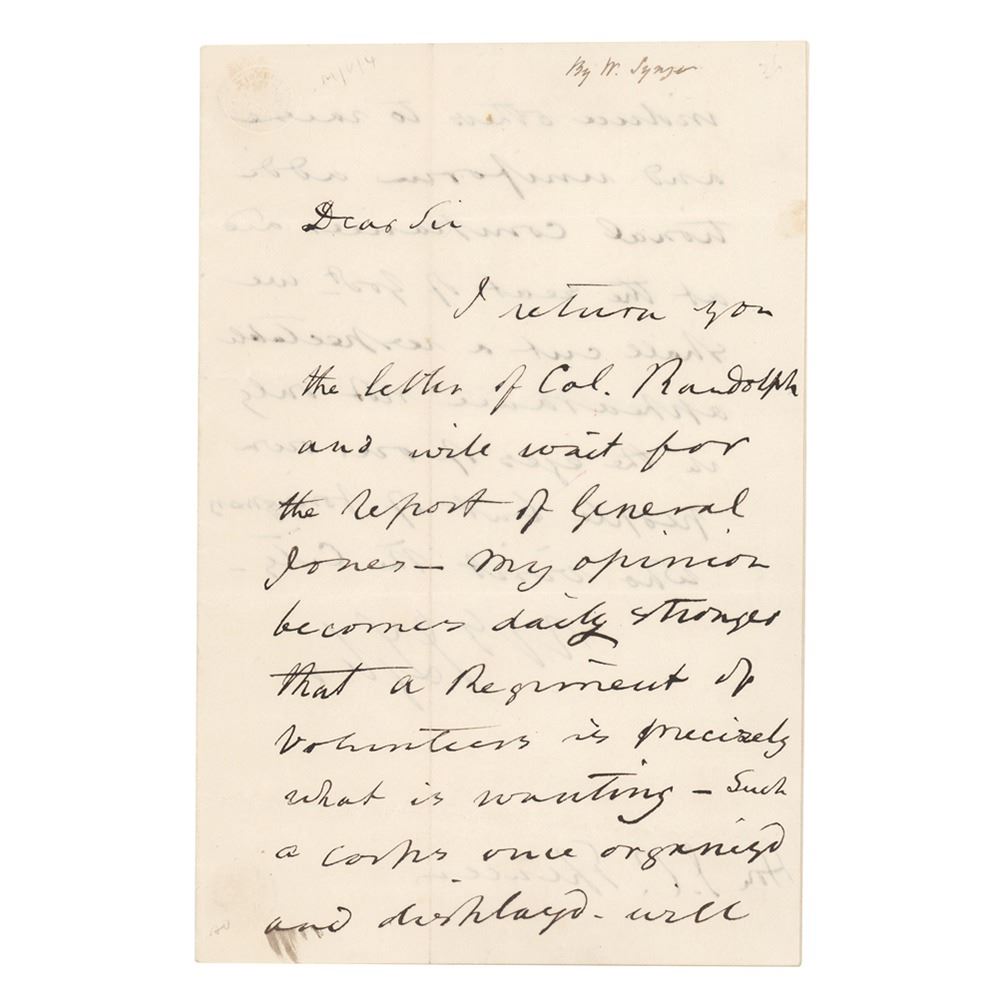 By W.
Dear Sir
I return you
the letter of Col. Randolph
and will wait for
the report of General
Jones — My opinion
becomes daily stronger
that a Regiment of
Volunteers is precisely
what is wanting — Such
a corps once organizd
and displayd - will